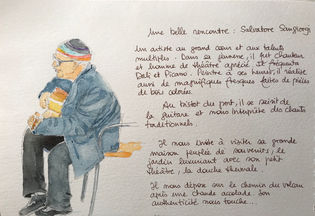 Une belle rencontre : Salvatore
Un artiste au grand cœur et aux talents
multiples. Dans sa jeunesse, il fut chanteur
et homme de théâtre apprécié et fréquenta
Dali et Picasso. Peintre à ses heures, il réalise
aussi de magnifiques fresques faites de pièces
de bois colorées.
Au bistot du port, il se saisit de
la guitare et nous interprète des chants
traditionnels.
Il nous invite à visiter sa grande
maison peuplée de souvenirs, le
jardin luxuriant avec son petit
théâtre, la douche
Il nous dépose sur le chemin du
après une chaude accolade. Son
authenticité nous touche...